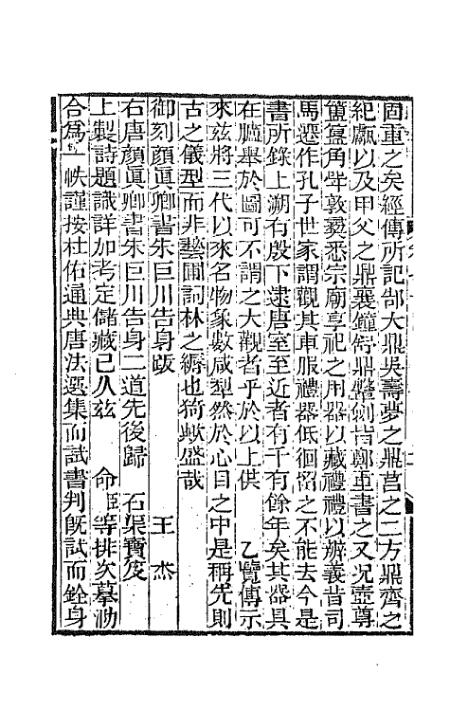 固重之矣經傳所記郜大鼎吳壽夢之鼎莒之二方鼎齊之
紀甗以及甲父之鼎襄鐘舒鼎鞶鑑皆鄭重書之又况壺尊
簠簋角斝敦爵悉宗廟享祀之用器以藏禮禮以辨義昔司
馬遷作孔子世家謂觀其車服禮器低徊留之不能去今是
書所錄上溯有殷下逮唐室至近者有千有餘年矣其器具
在臚舉於圖可不謂之大觀者乎於以上供 乙覽傳示
來兹將三代以來名物象數咸犁然於心目之中是稱先則
古之儀型而非藝圃詞林之縟也猗歟盛哉
御刻顏眞卿書朱巨川告身跋 王杰
右唐顏眞卿書朱巨川告身二道先後歸 石渠寶笈
上製詩題識詳加考定儲藏已久兹 命臣等排次摹泐
合爲一帙謹按杜佑通典唐法選集而試書判旣試而銓身